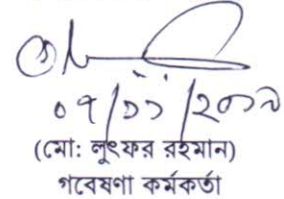 ০৭/১১/২০১৯
(মো: লুৎফর রহমান)
গবেষণা কর্মকর্তা